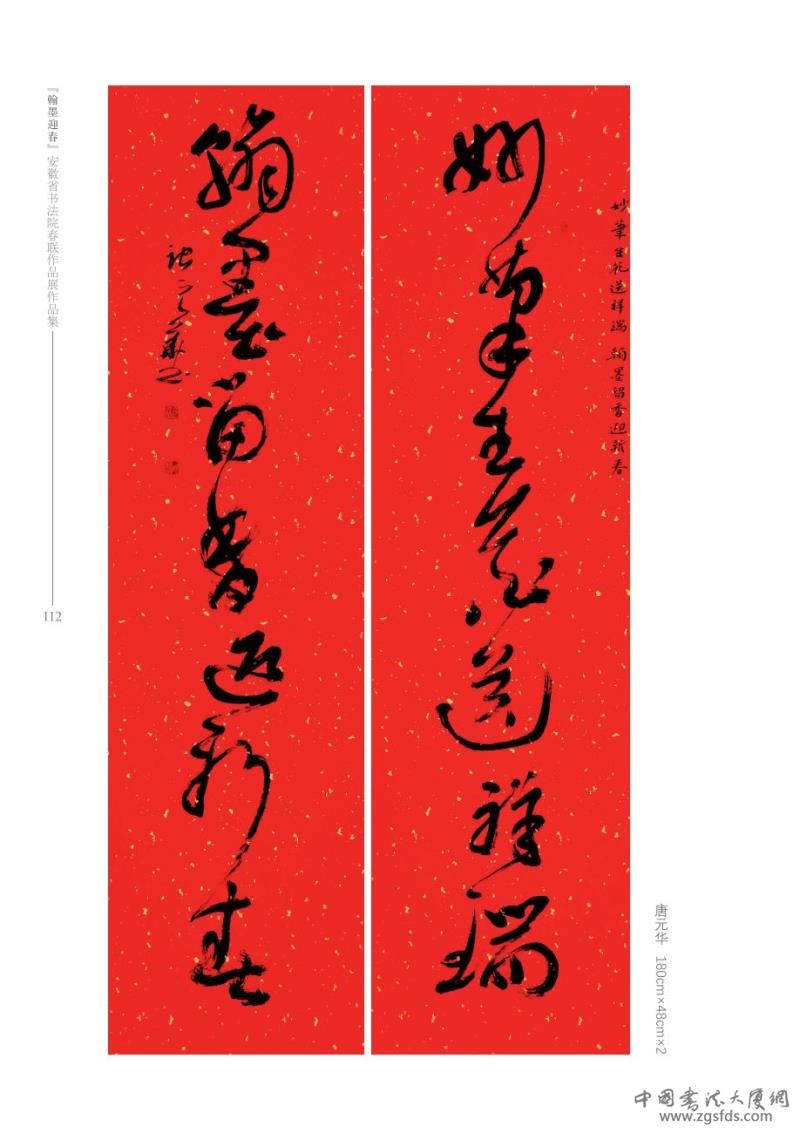 妙筆生花送祥瑞
翰墨留香迎新春
妙筆生花送祥瑞 翰墨留香迎新春
『翰墨迎春』安徽省书法院春联作品展作品集
112
唐元华 180cm×48cm×2
中国书法大厦網
www.zgsfds.com